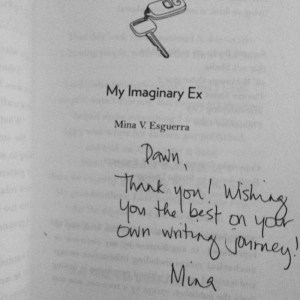 My Imaginary Ex
Mina V. Esguerra
Dawn,
Thank you! Wishing
you the best on your
own writing journey!
Mina